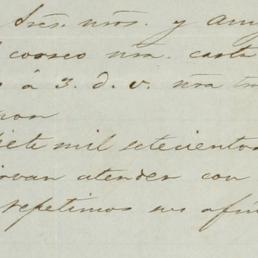 Sres. nros. y am
correo nra. carta
á 3. d. v. nra
siete mil setecientos
sirvan atender con
repetimos